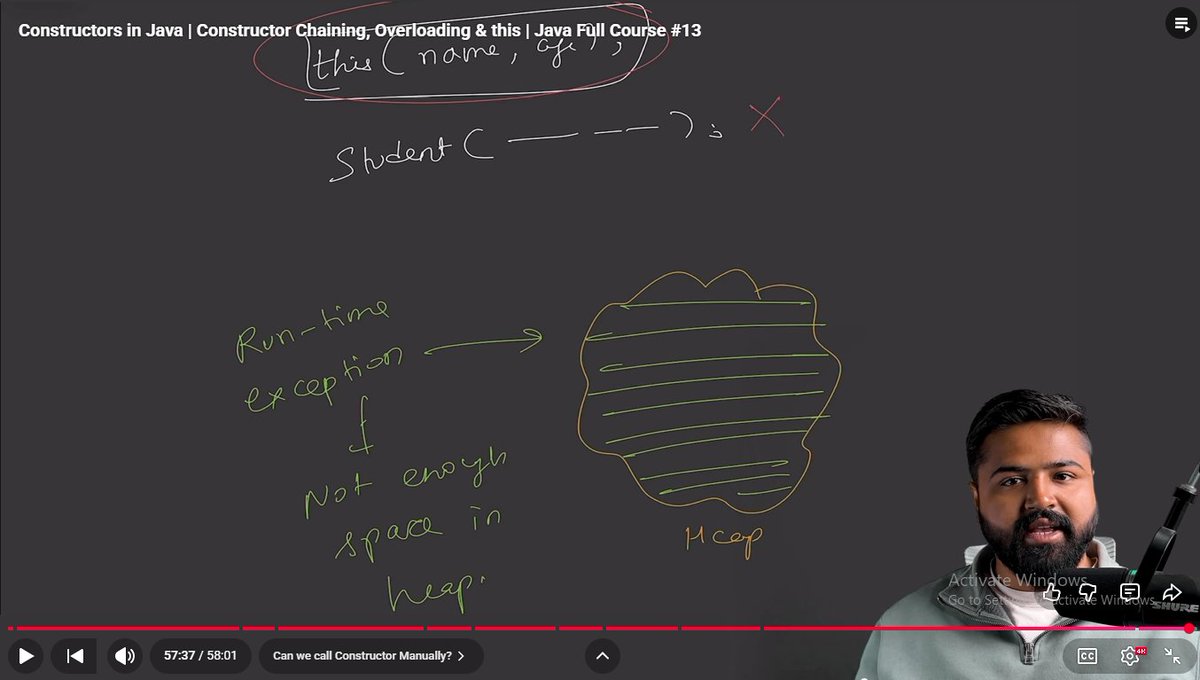 Constructors in Java | Constructor Chaining, Overloading & this | Java Full Course #13
this ( name, age ) ;
Student ( — — — ) ; X
Run-time
exception
Not enough
space in
heap.
Heap
Activate Windows
SHURE
57:37 / 58:01
Can we call Constructor Manually? >
CC
4K